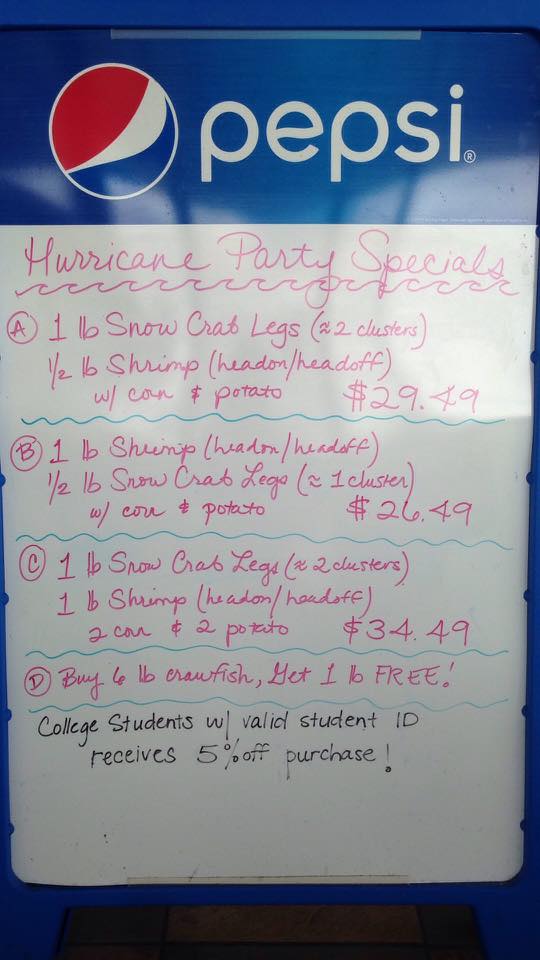 pepsi®
Hurricane Party Specials
Ⓐ 1 lb Snow Crab Legs (≈2 clusters)
1/2 lb Shrimp (headon/headoff)
w/ corn & potato $29.49
Ⓑ 1 lb Shrimp (headon/headoff)
1/2 lb Snow Crab Legs (≈ 1 cluster)
w/ corn & potato $26.49
Ⓒ 1 lb Snow Crab Legs (≈ 2 clusters)
1 lb Shrimp (headon/headoff)
2 corn & 2 potato $34.49
Ⓓ Buy 6 lb crawfish, Get 1 lb FREE!
College Students w/ valid student ID
receives 5% off purchase!